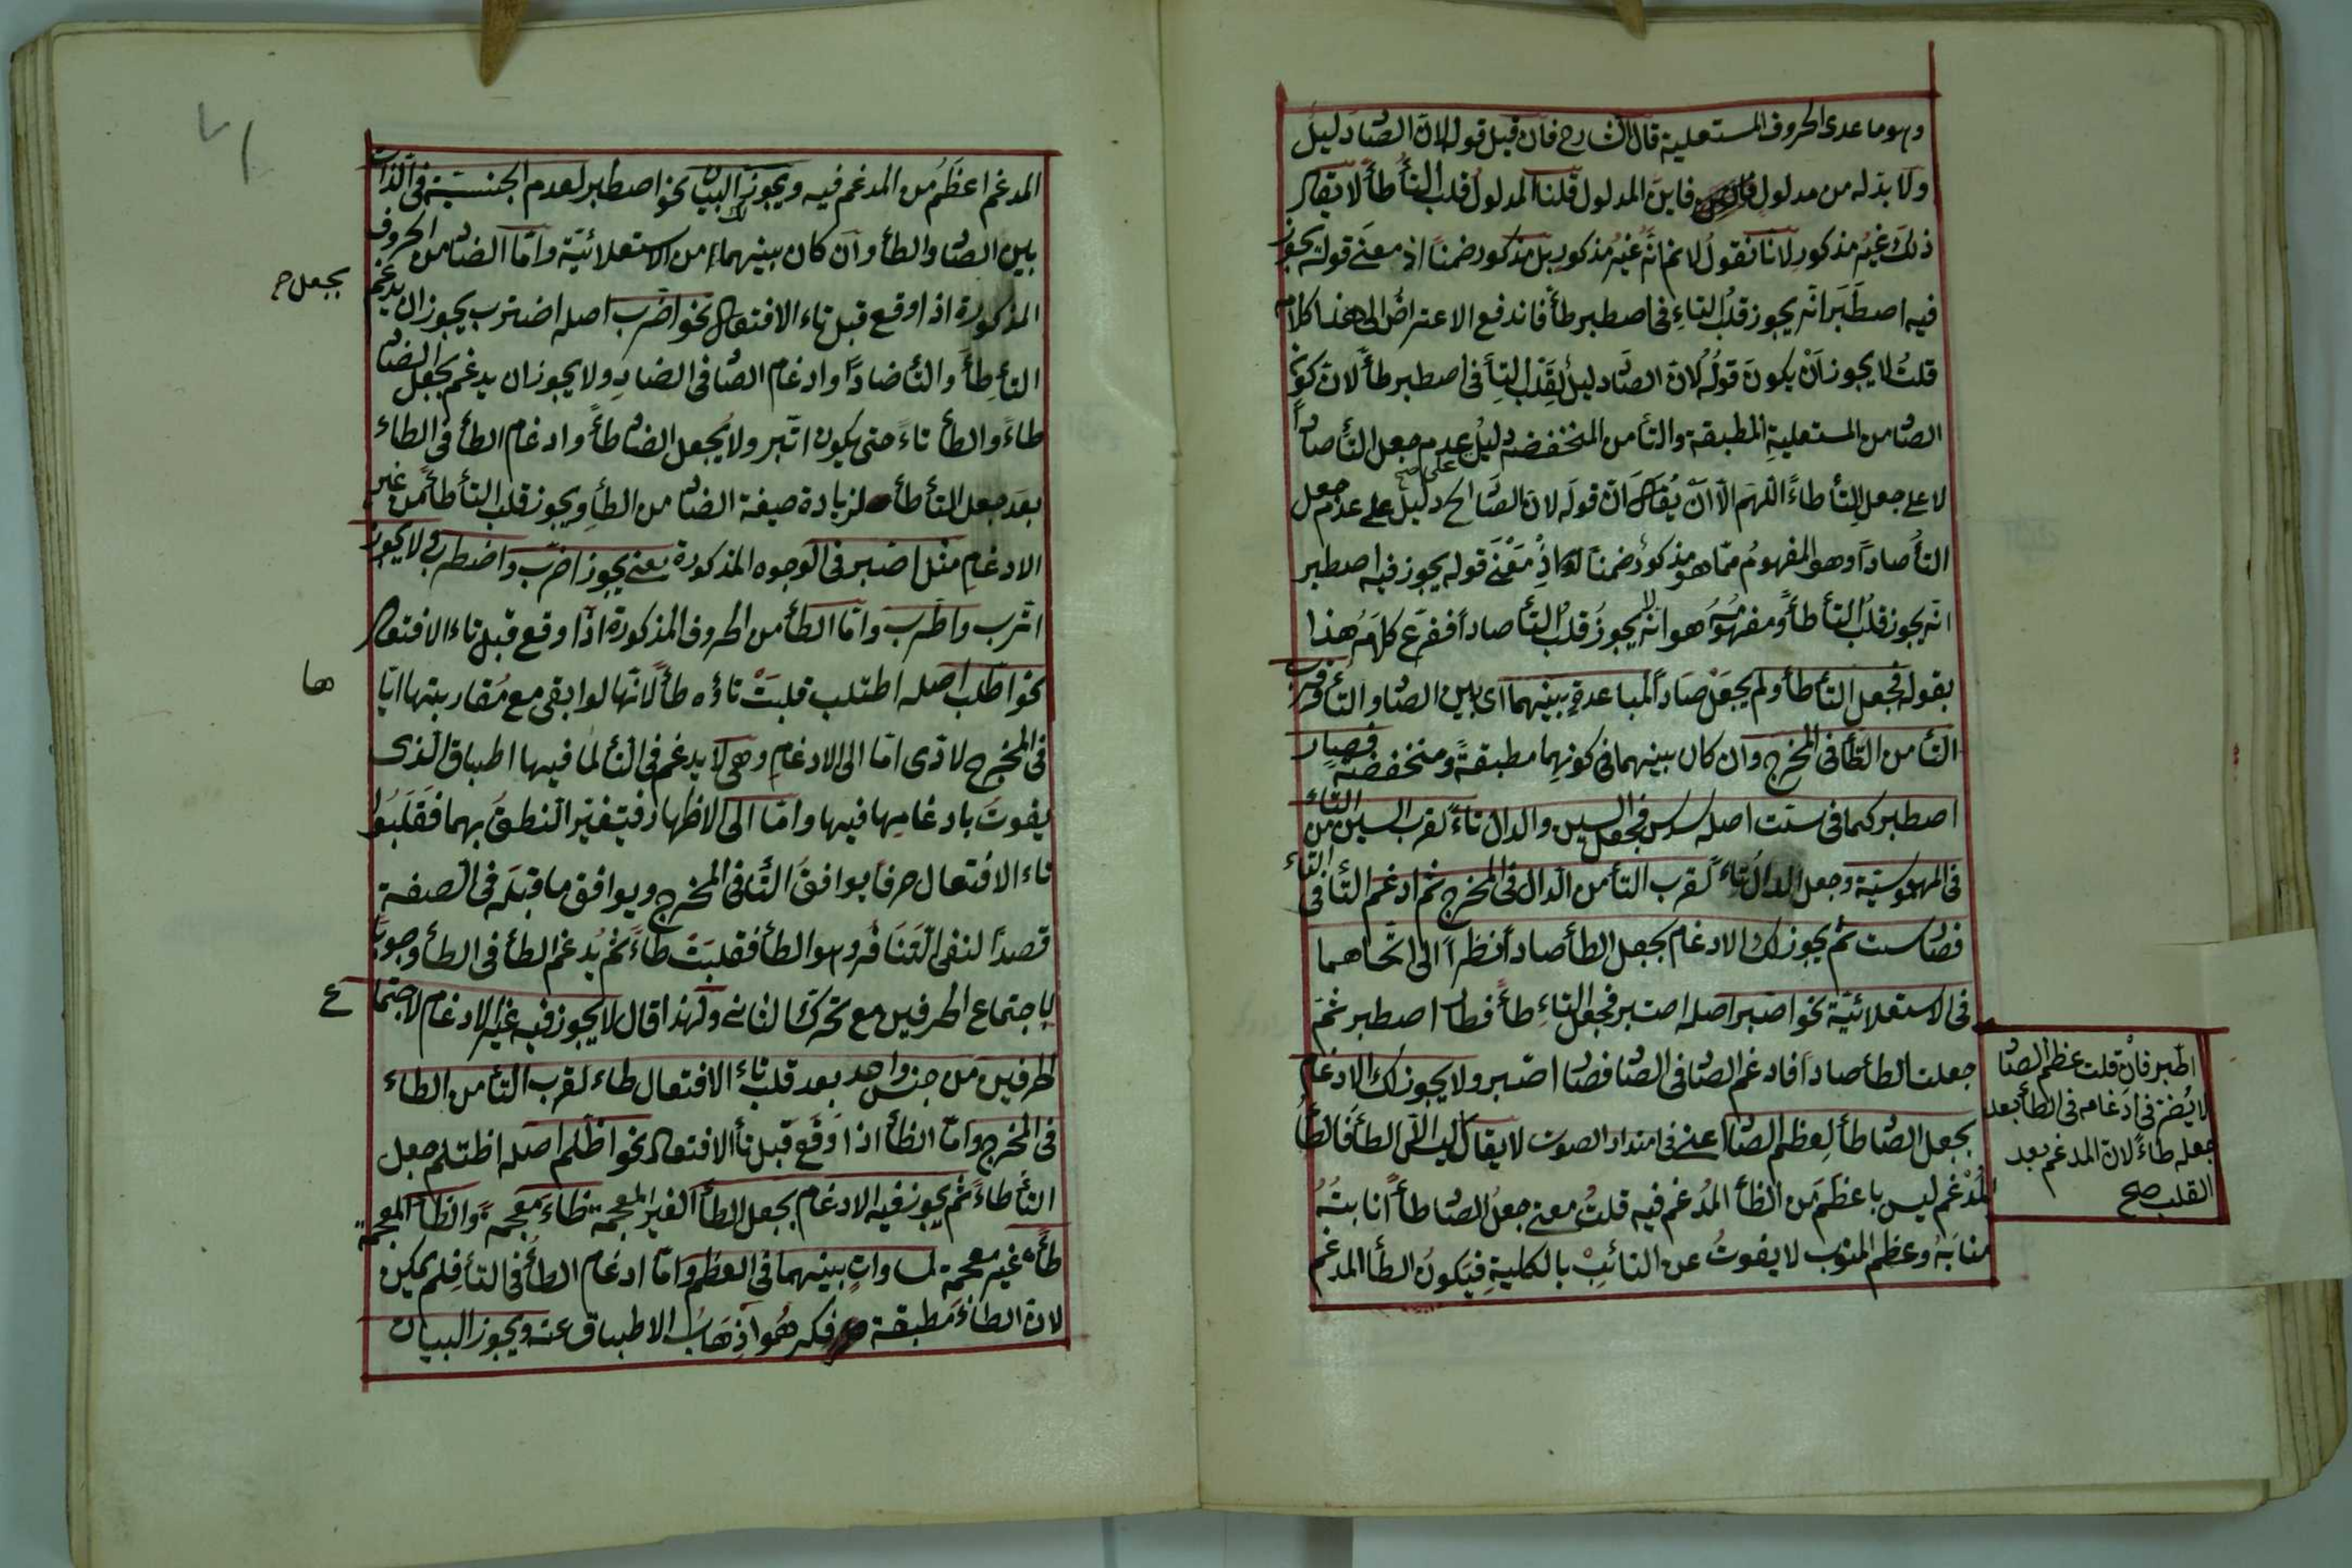 وهو ما عدى الحروف المستعلية قال الشارح فان قيل قوله لان الصاد دليل
ولا بد له من مدلول فاين المدلول قلنا المدلول قلب التأ طأ لا يقال
ذلك غير مذكور لانا نقول لا نم انه غير مذكور بل مذكور ضمنا اذ معنى قوله يجوز
فيه اصطبر انه يجوز قلب التاء فى اصطبر طأ فاندفع الاعتراض الى هنا كلامه
قلت لا يجوز ان يكون قوله لان الصاد دليل لقلب التأ فى اصطبر طأ لان كون
الصاد من المستعلية المطبقة والتأ من المنخفضه دليل عدم جعل التأ صادا
لا على جعل التأ طاء اللهم الا ان يقال ان قوله لان الصاد الخ دليل على عدم جعل
التأ صادا وهو المفهوم مما هو مذكور ضمنا اذ معنى قوله يجوز فيه اصطبر
انه يجوز قلب التأ طأ ومفهومه هو انه لا يجوز قلب التأ صادا ففرع كلامه هذا
بقوله فجعل التأ طأ ولم يجعل صادا لمباعدة بينهما اى بين الصاد والتأ وقرب
التأ من الطأ فى المخرج وان كان بينهما فى كونهما مطبقة ومنخفضة فصار
اصطبر كما فى ست اصله سدس فجعل السين والدال تاء لقرب السين من التاء
فى المهموسية وجعل الدال تاء لقرب التأ من الدال فى المخرج ثم ادغم التأ فى التاء
فصار ست ثم يجوز لك الادغام بجعل الطأ صادا نظرا الى اتحاهما
فى الاستعلائية نحو اصبر اصله اصتبر فجعل التاء طأ فصار اصطبر ثم
جعلت الطأ صادا فادغم الصاد فى الصاد فصار اصبر ولا يجوز لك الادغام
بجعل الصاد طأ لعظم الصاد اعنى فى امتداد الصوت لا يقال فالطأ
المدغم ليس باعظم من الطأ المدغم فيه قلت معنى جعل الصاد طأ انابته
منابه وعظم المنوب لا يفوت عن النائب بالكلية فيكون الطأ المدغم
اطبر فان قلت عظم الصاد
لا يضر فى ادغامه فى الطأ بعد
جعله طاء لان المدغم بعد
القلب صح
المدغم اعظم من المدغم فيه ويجوز البيان نحو اصطبر لعدم الجنسية فى الذات
بين الصاد والطأ وان كان بينهما من الاستعلائية واما الضاد من الحروف
المذكورة اذا وقع قبل تاء الافتعال نحو اضرب اصله اضترب يجوز ان يدغم
بجعل ح
التأ طأ والتأ ضادا وادغام الضاد فى الضاد ولا يجوز ان يدغم بجعل الضاد
طاء والطأ تاء حتى يكون اتبر ولا يجعل الضاد طأ وادغام الطأ فى الطاء
بعد جعل التأ طأ لزيادة صيغة الضاد من الطأ ويجوز قلب التأ طأ من غير
الادغام مثل اضبر فى الوجوه المذكورة يعنى يجوز اضرب واضطرب ولا يجوز
اترب واطرب واما الطأ من الحروف المذكورة اذا وقع قبل تاء الافتعال
نحو اطلب اصله اطتلب قلبت تاؤه طأ لانها لو ابقى مع مقاربتها اياها
فى المخرج لادى اما الى الادغام وهى لا يدغم فى التأ لما فيها اطباق الذى
يفوت بادغامها فيها واما الى الاظهار فيتغير النطق بهما فقلبوا
تاء الافتعال حرفا يوافق التأ فى المخرج ويوافق ما قبله فى الصفة
قصدا لنفى التنافر وهو الطأ فقلبت طاء ثم يدغم الطأ فى الطأ وجوبا
لاجتماع الحرفين مع تحرك الثانى ولهذا قال لا يجوز فيه غير الادغام لاجتماع
الحرفين من جنس واحد بعد قلب تاء الافتعال طاء لقرب التأ من الطاء
فى المخرج واما الظأ اذا وقع قبل تأ الافتعال نحو اظلم اصله اظتلم جعل
التأ طاء ثم يجوز فيه الادغام بجعل الطأ الغير المعجمه ظاء معجمة والظأ المعجمة
طأ غير معجمة لمساوات بينهما فى العظم واما ادغام الطأ فى التأ فلم يمكن
لان الطاء مطبقة فكرهوا اذهاب الاطباق عنه ويجوز البيان